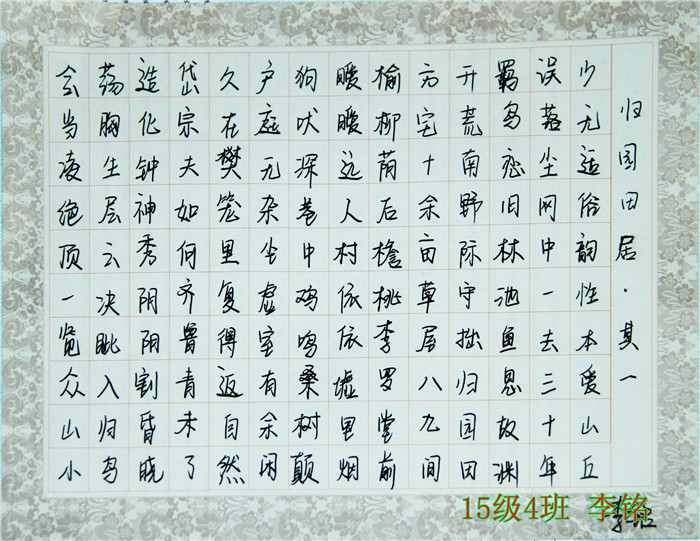 归园田居·其一
少无适俗韵性本爱山丘
误落尘网中一去三十年
羁鸟恋旧林池鱼思故渊
开荒南野际守拙归园田
方宅十余亩草屋八九间
榆柳荫后檐桃李罗堂前
暧暧远人村依依墟里烟
狗吠深巷中鸡鸣桑树颠
户庭无杂尘虚室有余闲
久在樊笼里复得返自然
岱宗夫如何齐鲁青未了
造化钟神秀阴阳割昏晓
荡胸生层云决眦入归鸟
会当凌绝顶一览众山小
李铭
15级4班 李铭